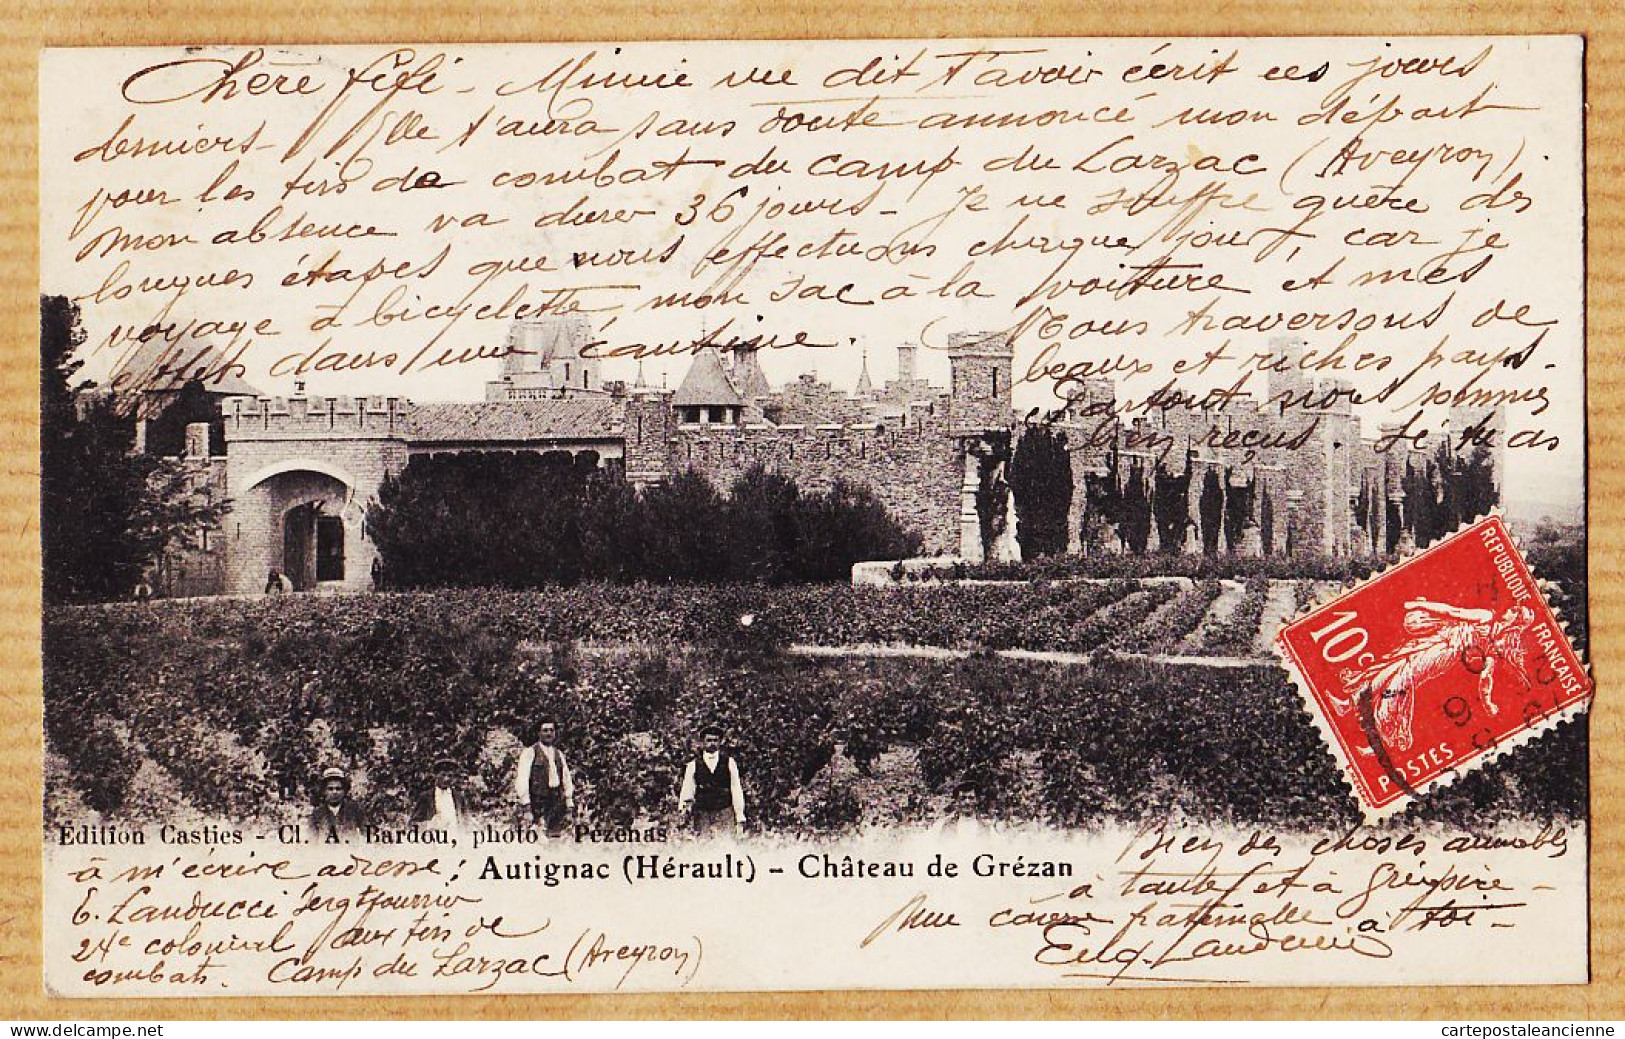 Chère fifi - Mimie me dit t'avoir écrit ces jours
derniers - Elle t'aura sans doute annoncé mon départ
pour les tirs de combat du camp du Larzac (Aveyron).
Mon absence va durer 36 jours - Je ne souffre guère des
longues étapes que nous effectuons chaque jour, car je
voyage à bicyclette, mon sac à la voiture et mes
effets dans une cantine. Nous traversons de
beaux et riches pays.
Partout nous sommes
bien reçus. Si tu as
RÉPUBLIQUE FRANÇAISE
10c
POSTES
Édition Casties - Cl. A. Bardou, photo - Pézénas
Autignac (Hérault) - Château de Grézan
à m'écrire adresse :
E. Landucci Sergt fourrier
24e colonial aux tirs de
combats. Camp du Larzac (Aveyron)
Bien des choses aimables
à tantes et à Grégoire -
Une caresse fraternelle à toi -
Eug. Landucci
cartepostaleancienne